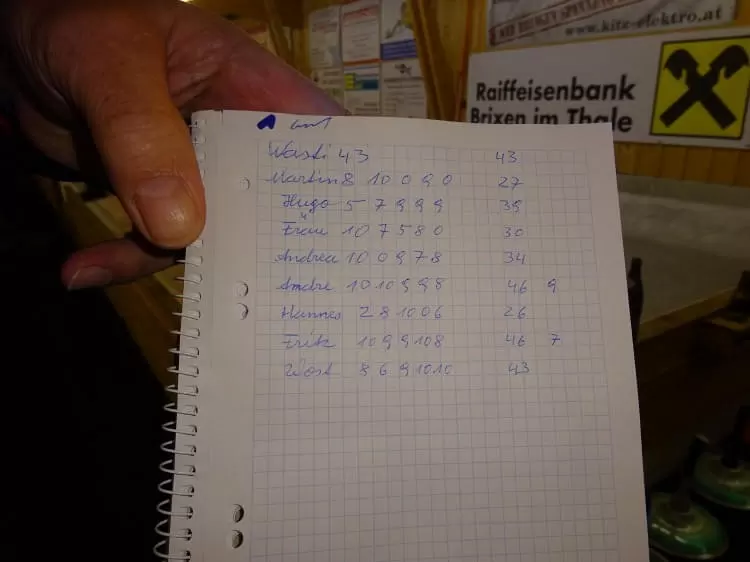 www.kitz-elektro.at
Raiffeisenbank
Brixen im Thale
Wasti 43 43
Martin 8 10 0 9 0 27
Hugo 5 7 9 9 9 39
Frau 10 7 5 8 0 30
Andrea 10 0 9 7 8 34
Andre 10 10 9 9 8 46 9
Hannes 2 8 10 0 6 26
Fritz 10 9 9 10 8 46 7
Wast 8 6 9 10 10 43